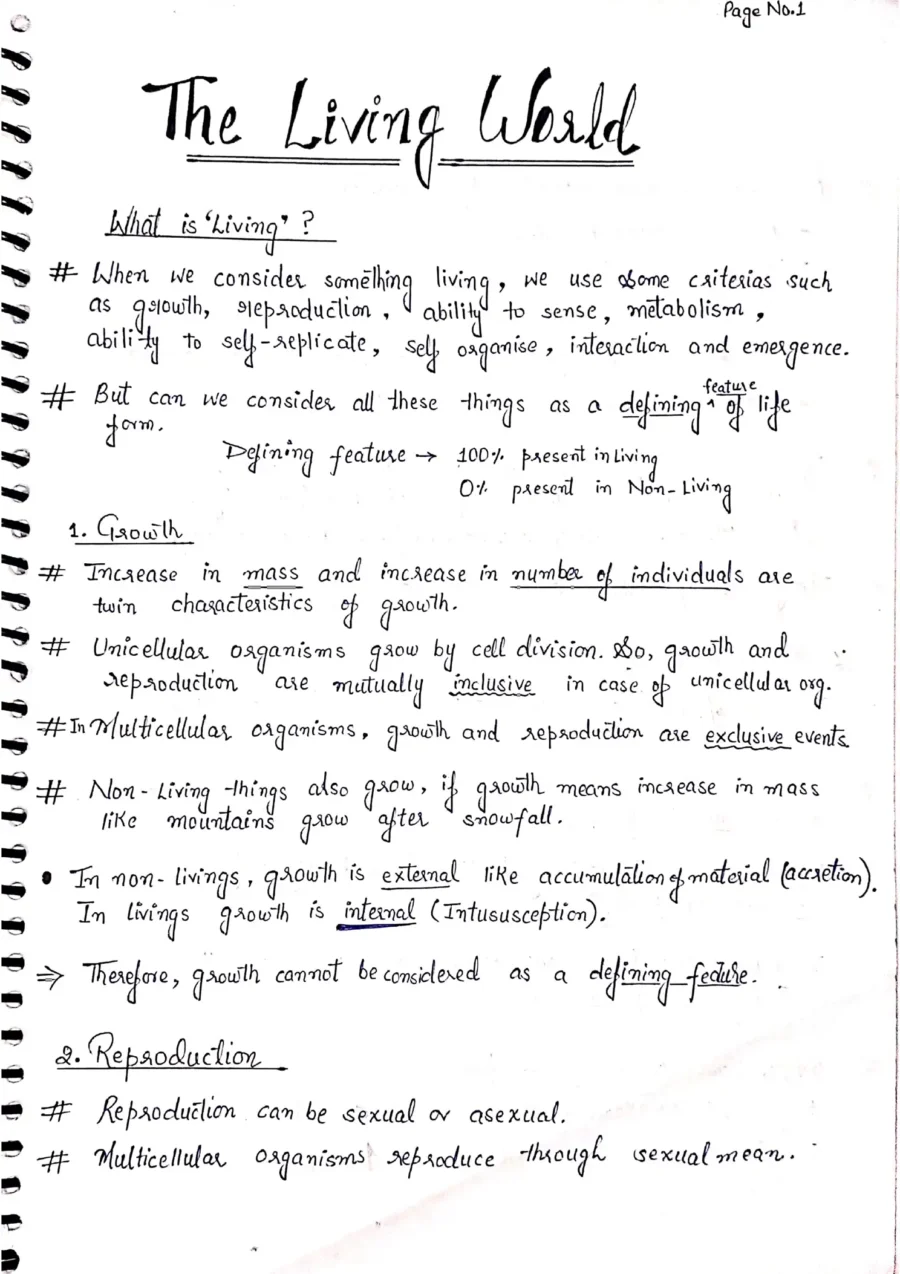 Page No.1
The Living World
What is 'Living' ?
# When we consider something living, we use some criterias such
as growth, reproduction, ability to sense, metabolism,
ability to self-replicate, self organise, interaction and emergence.
# But can we consider all these things as a defining ^ feature of life
form.
Defining feature → 100% present in Living
0% present in Non-Living
1. Growth
# Increase in mass and increase in number of individuals are
twin characteristics of growth.
# Unicellular organisms grow by cell division. So, growth and
reproduction are mutually inclusive in case of unicellular org.
# In Multicellular organisms, growth and reproduction are exclusive events
# Non-Living things also grow, if growth means increase in mass
like mountains grow after snowfall.
• In non-livings, growth is external like accumulation of material (accretion).
In livings growth is internal (Intususception).
⇒ Therefore, growth cannot be considered as a defining feature.
2. Reproduction
# Reproduction can be sexual or asexual.
# Multicellular organisms reproduce through sexual mean.